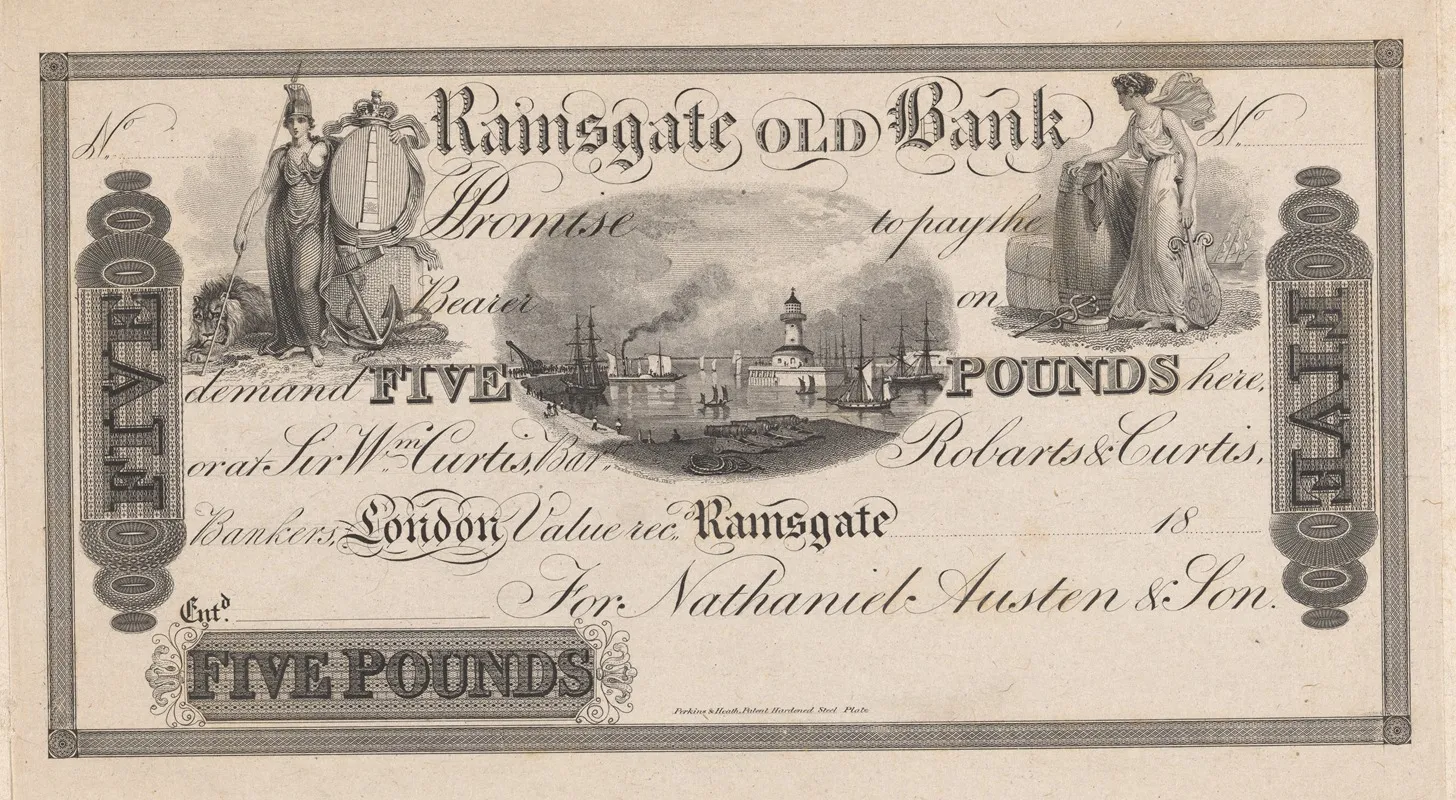 Ramsgate OLD Bank
No. No.
I Promise to pay the
Bearer on
demand FIVE POUNDS here,
or at Sir Wm. Curtis, Bart. Robarts & Curtis,
Bankers, London Value recd. Ramsgate 18
For Nathaniel Austen & Son.
Entd.
FIVE POUNDS
FIVE
FIVE
Perkins & Heath, Patent Hardened Steel Plate